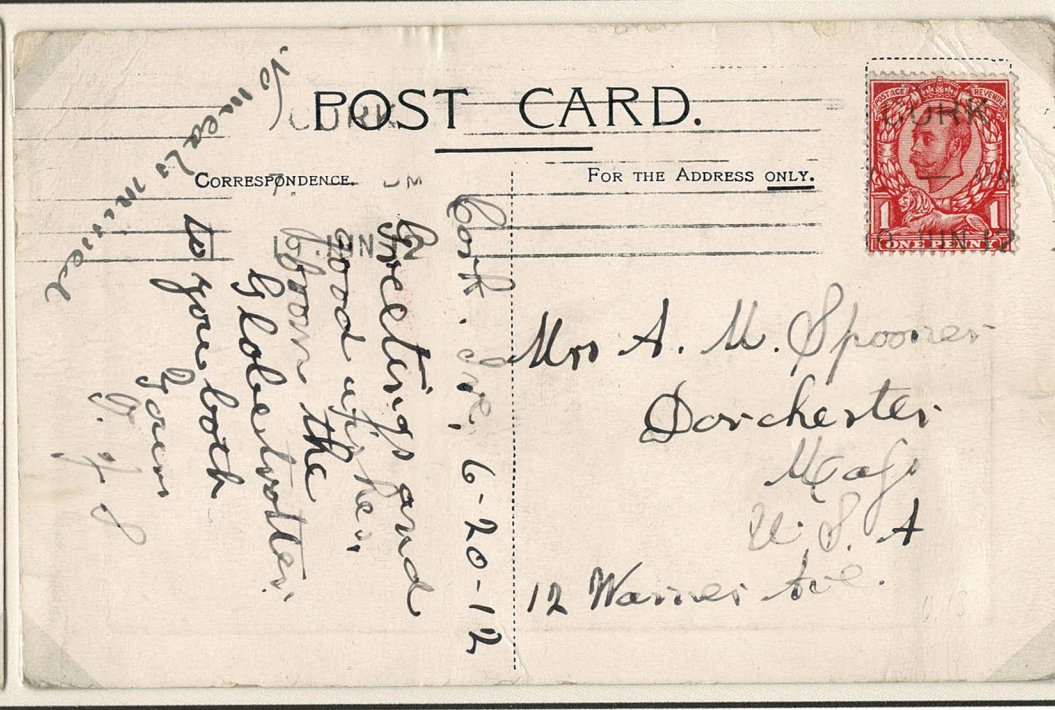 POST CARD.
CORRESPONDENCE.
FOR THE ADDRESS ONLY.
POSTAGE REVENUE
1 1
ONE PENNY
CORK
CORK
JUN 12
Cork. Ire, 6-20-12
Greetings and
good wishes
from the
Globetrotter.
to you both
Yours
Mrs A. M. Spooner
Dorchester
Mass
U.S.A
12 Warner Ave.